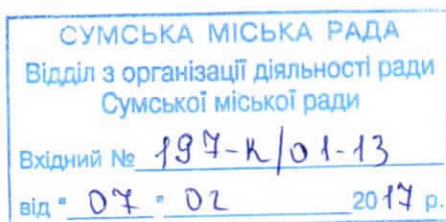 СУМСЬКА МІСЬКА РАДА
Відділ з організації діяльності ради
Сумської міської ради
Вхідний № 197-К/01-13
від " 07 " 02 2017 р.